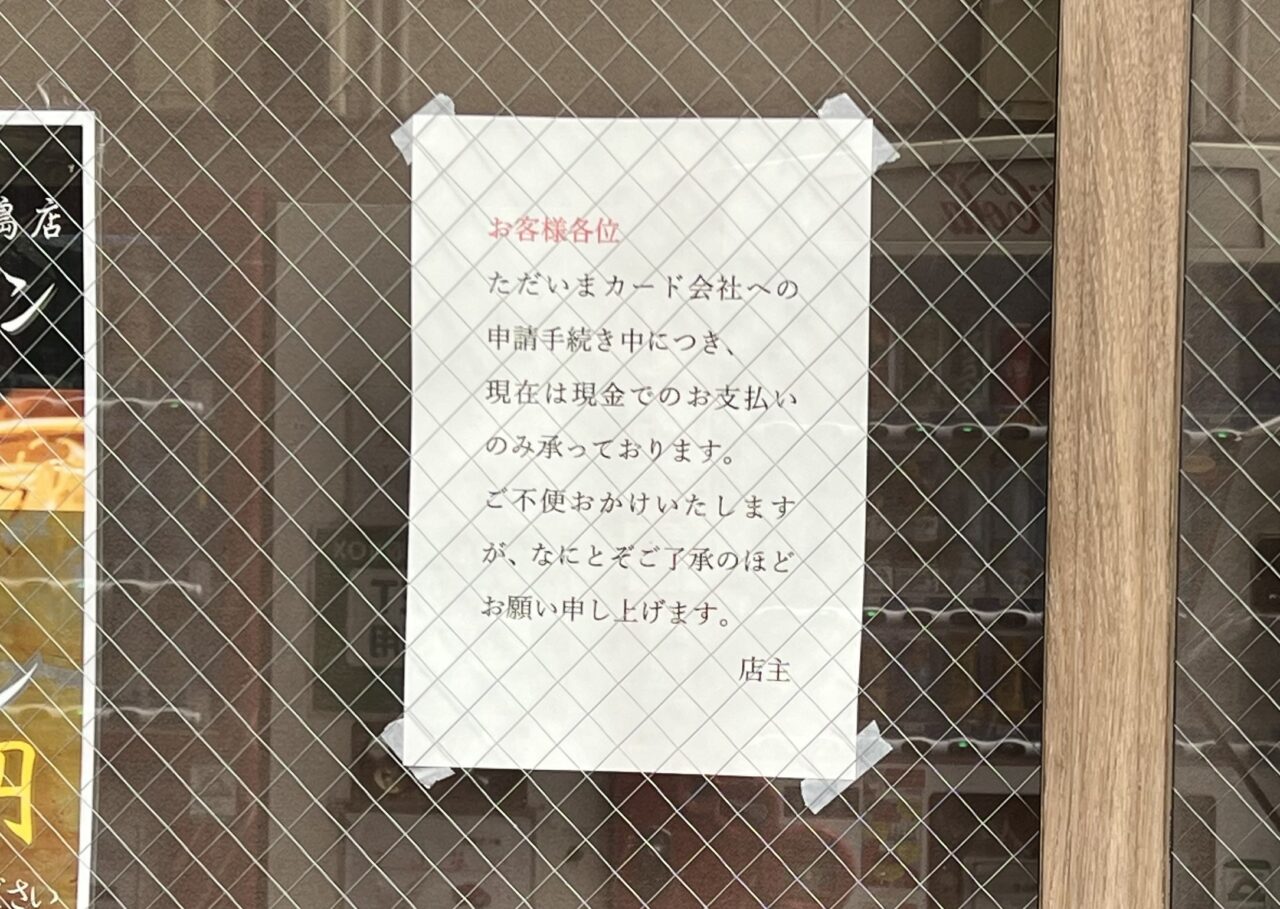 お客様各位
ただいまカード会社への
申請手続き中につき、
現在は現金でのお支払い
のみ承っております。
ご不便おかけいたします
が、なにとぞご了承のほど
お願い申し上げます。
店主
店
ン
円
さい